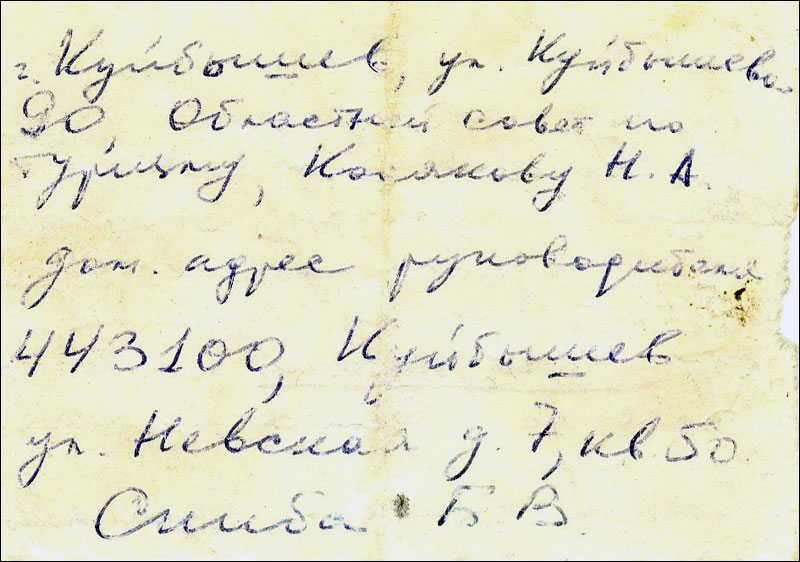 г. Куйбышев, ул. Куйбышева
90, Областной совет по
туризму, Косякову Н. А.
дом. адрес руководителя
443100, Куйбышев
ул. Невская д. 7, кв 50.
Б В